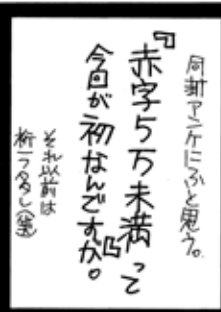 同封アンケにふと思う。
『赤字5万未満って
今回が初なんですか。』
それ以前は
桁一ツ多し(笑)